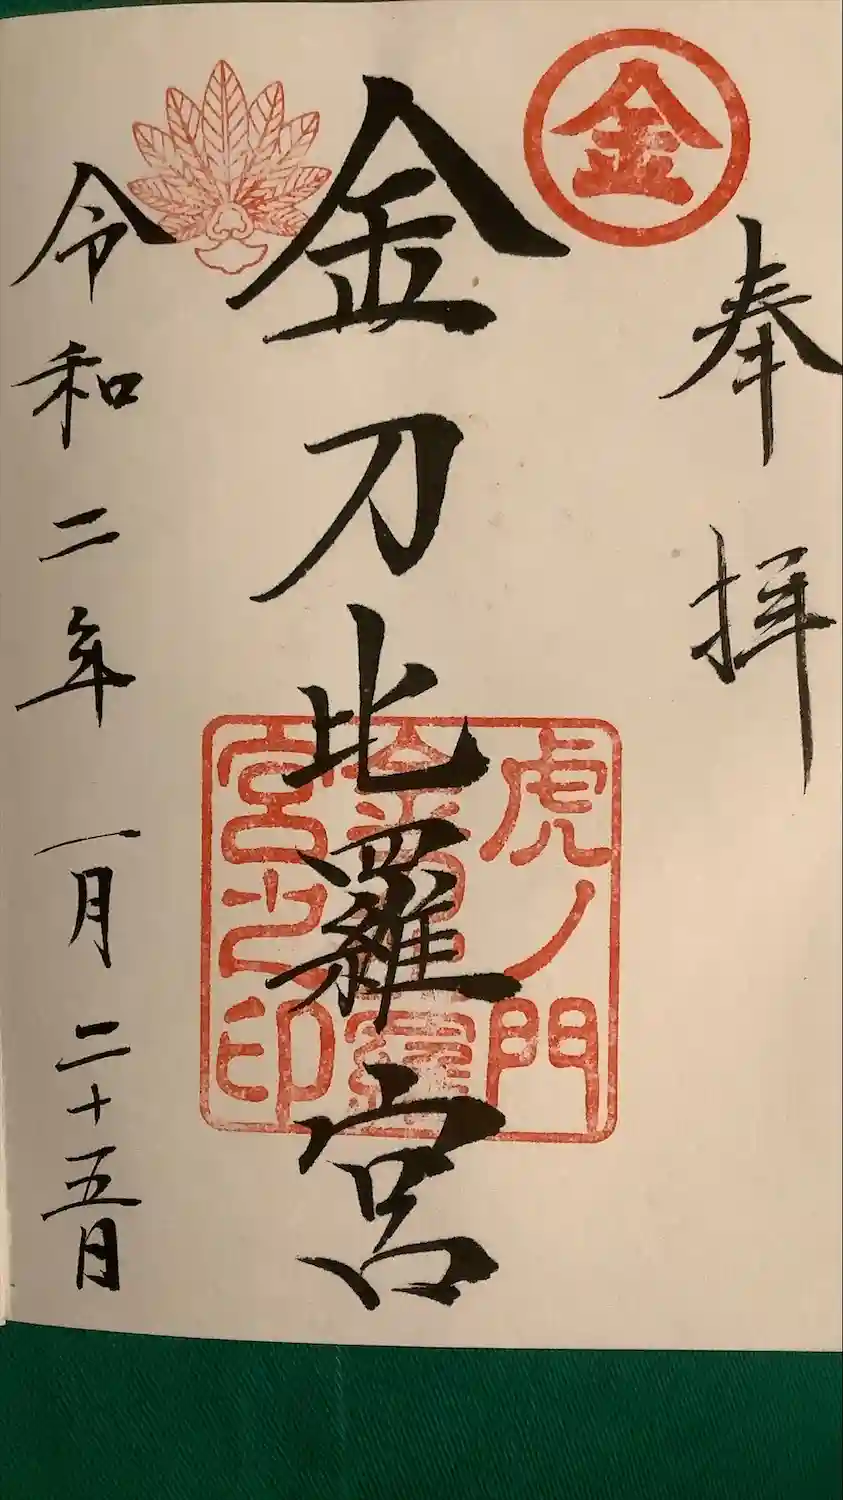 金
奉拝
金刀比羅宮
虎ノ門
金刀比羅
宮之印
令和二年一月二十五日